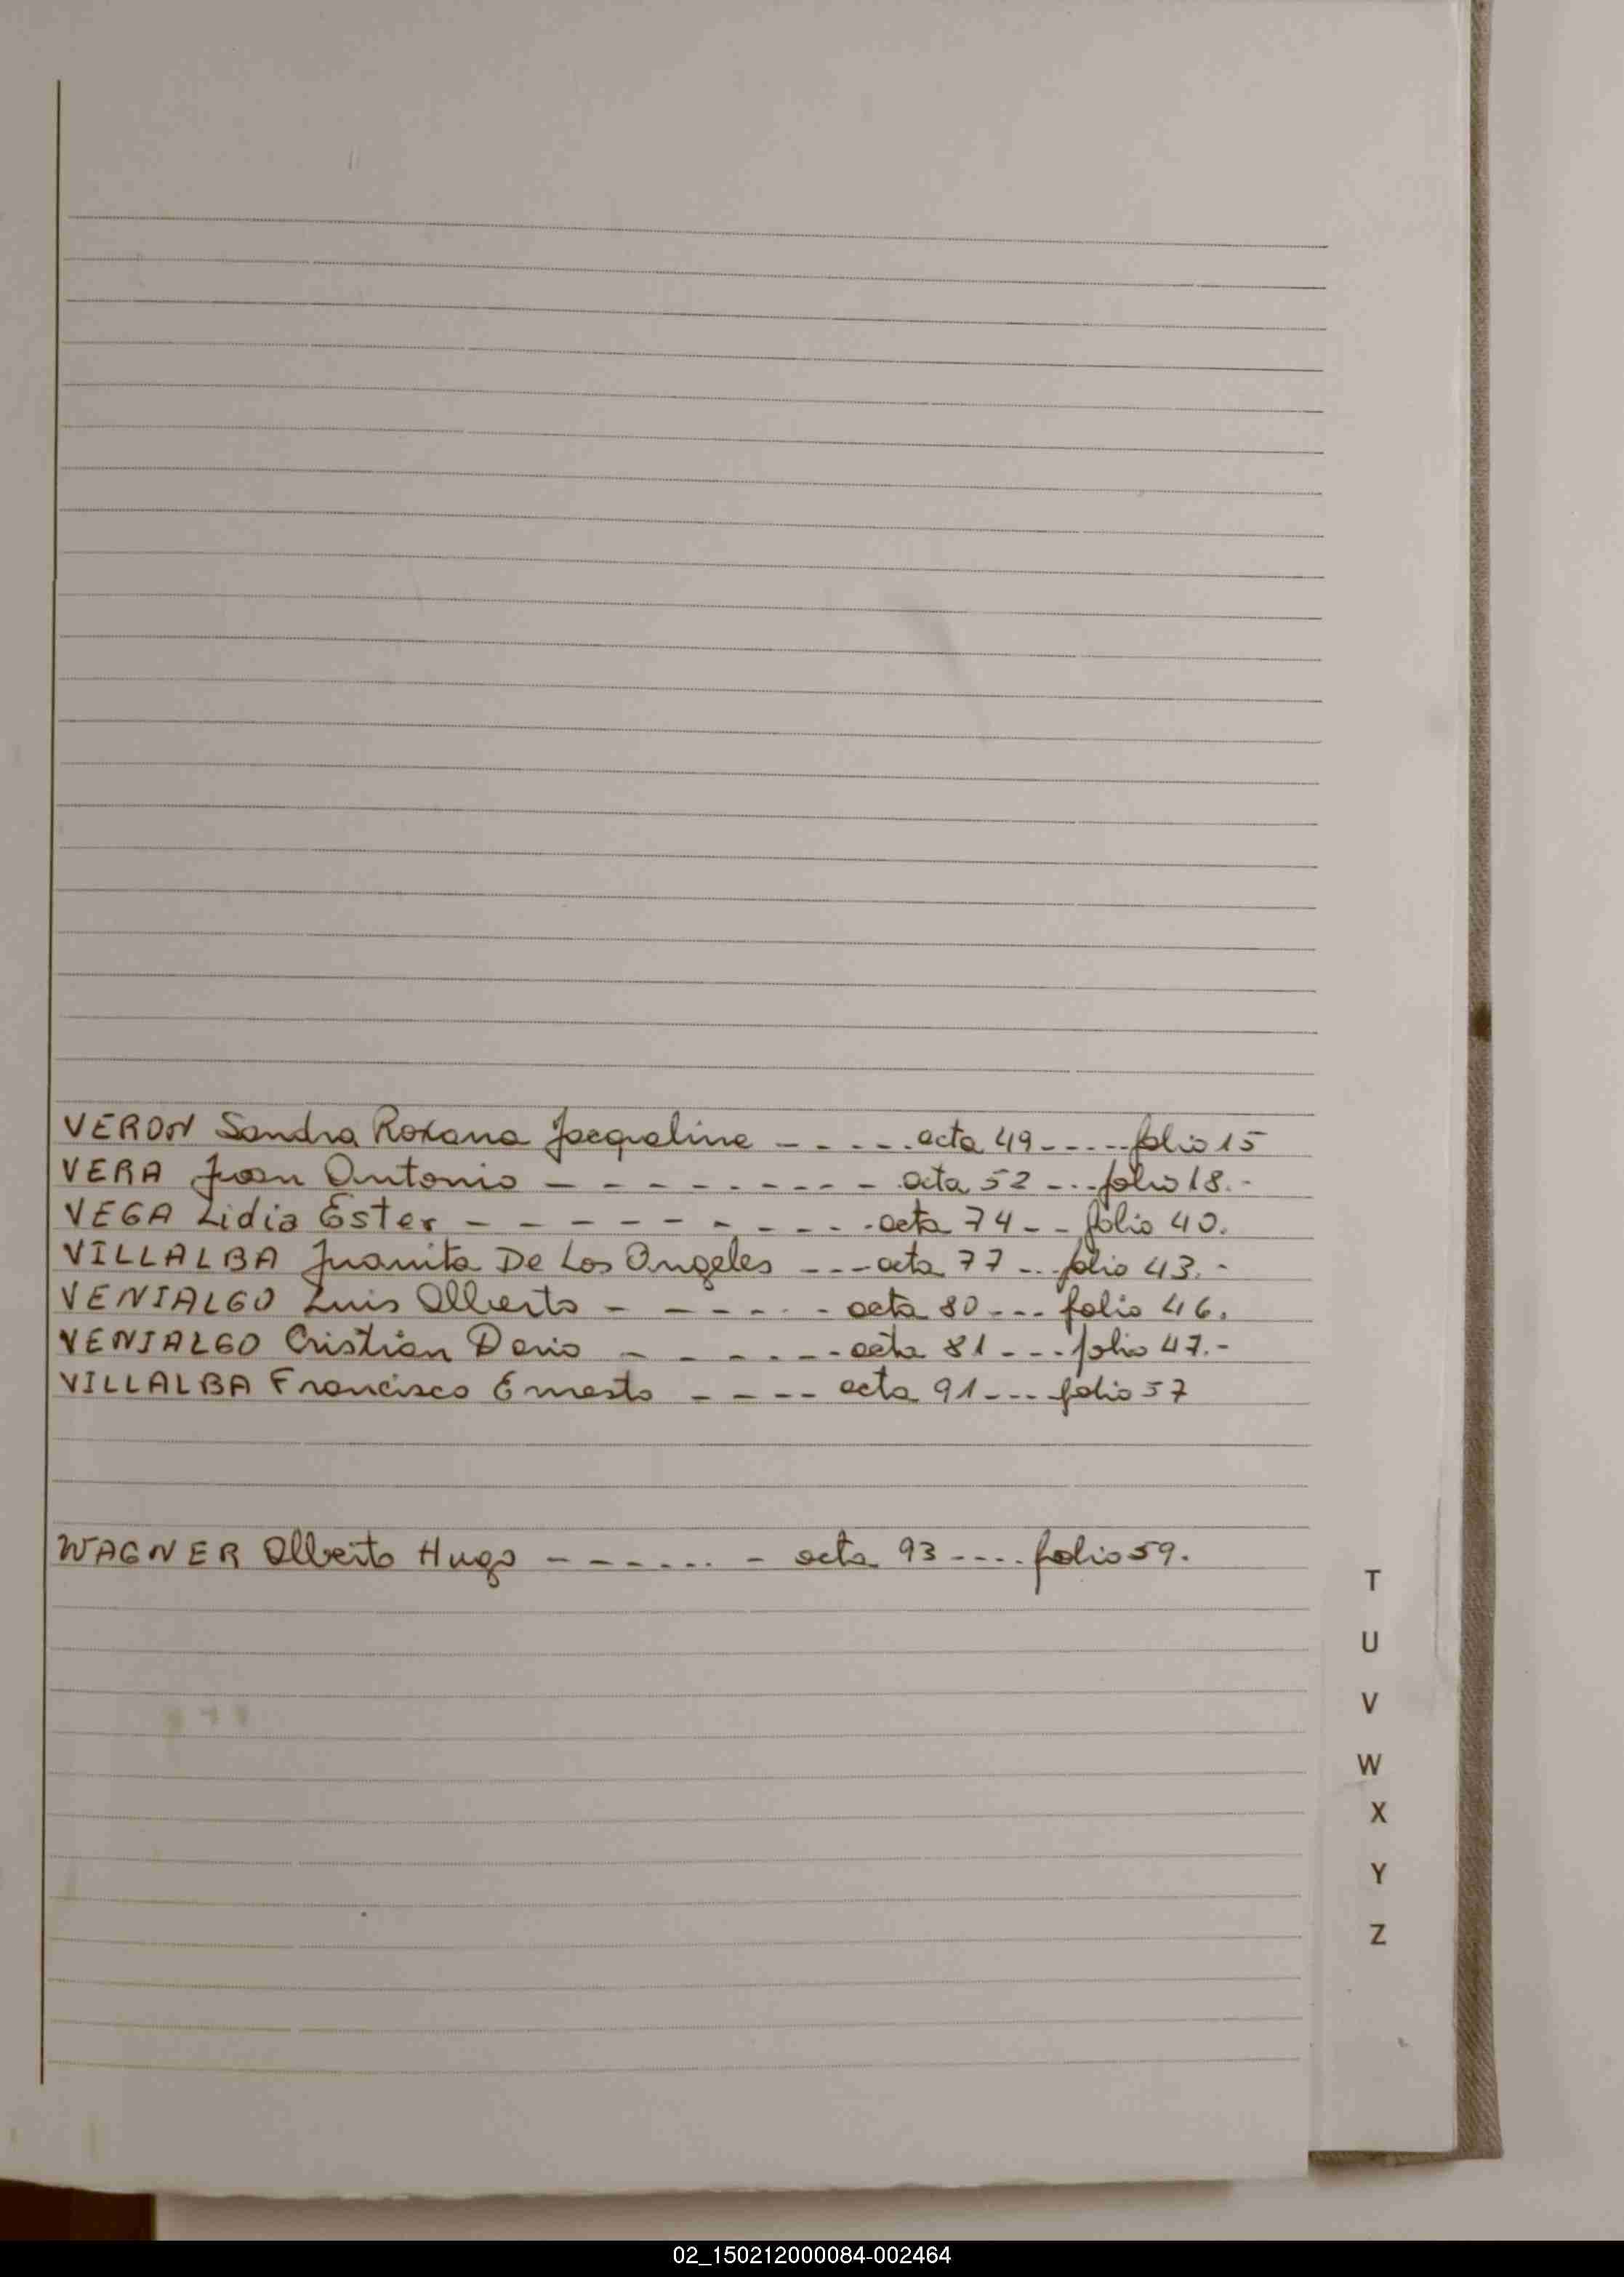 VERON Sandra Roxana Jacqueline - - - - - acta 49 - - - - - folio 15
VERA Juan Antonio - - - - - - - - - acta 52 - - - folio 18.-
VEGA Lidia Ester - - - - - - - - - - acta 74 - - folio 40.
VILLALBA Juanita De Los Angeles - - - - acta 77 - - - folio 43.-
VENIALGO Luis Alberto - - - - - - acta 80 - - - folio 46.
VENIALGO Cristian Dario - - - - - - acta 81 - - - folio 47.-
VILLALBA Francisco Ernesto - - - - - acta 91 - - - folio 57
WAGNER Alberto Hugo - - - - - - - - acta 93 - - - - folio 59.
T
U
V
W
X
Y
Z
02_150212000084-002464